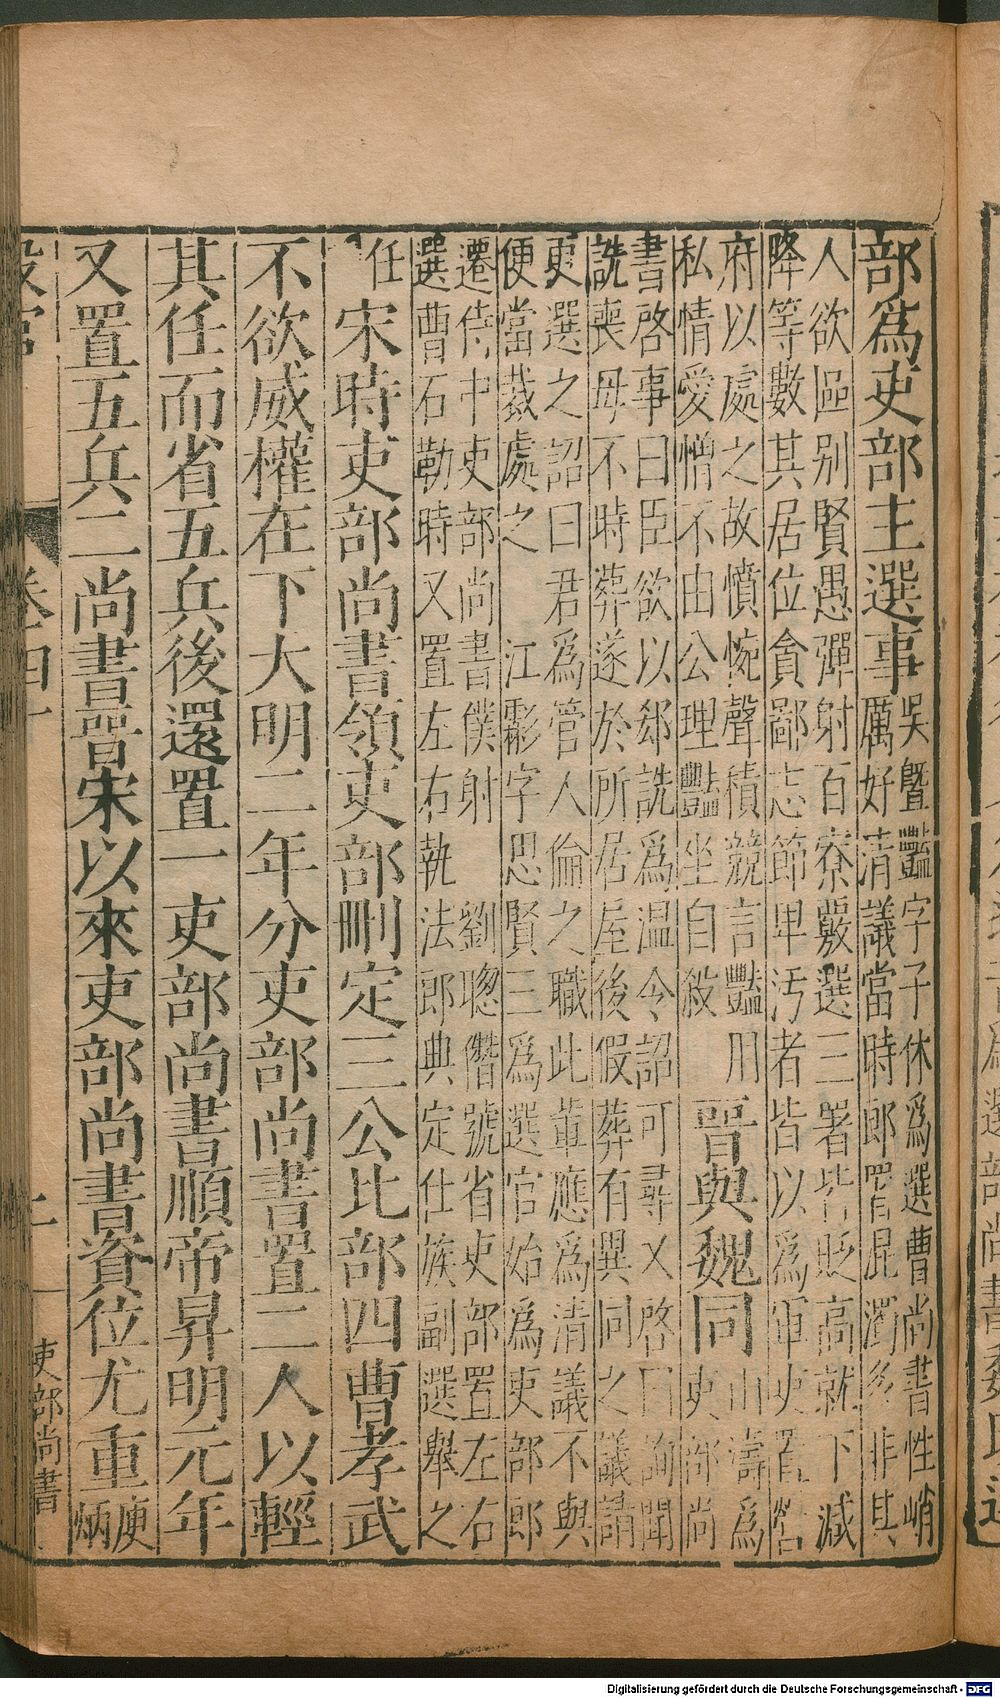 部爲吏部主選事吳暨豔字子休爲選曹尚書性峭
厲好清議當時郎署混濁多非其
人欲區别賢愚彈射百寮覈選三署皆貶高就下減
降等數其居位貪鄙志節卑汚者皆以爲軍吏置營
府以處之故憤惋聲積競言豔用
私情愛憎不由公理豔坐自殺
晉與魏同山濤爲
吏部尚
書啓事曰臣欲以郄詵爲温令詔可尋又啓曰訽聞
詵喪母不時葬遂於所居屋後假葬有異同之議請
更選之詔曰君爲管人倫之職此輩應爲清議不與
便當裁處之 江霦字思賢三爲選官始爲吏部郎
遷侍中吏部尚書僕射 劉聰僭號省吏部置左右
選曹石勒時又置左右執法郎典定仕族副選舉之
任 宋時吏部尚書領吏部刪定三公比部四曹孝武
不欲威權在下大明二年分吏部尚書置二人以輕
其任而省五兵後還置一吏部尚書順帝昇明元年
又置五兵二尚書晉宋以來吏部尚書資位尤重庾
炳
卷四十 吏部尚書
Digitalisierung gefördert durch die Deutsche Forschungsgemeinschaft - DFG